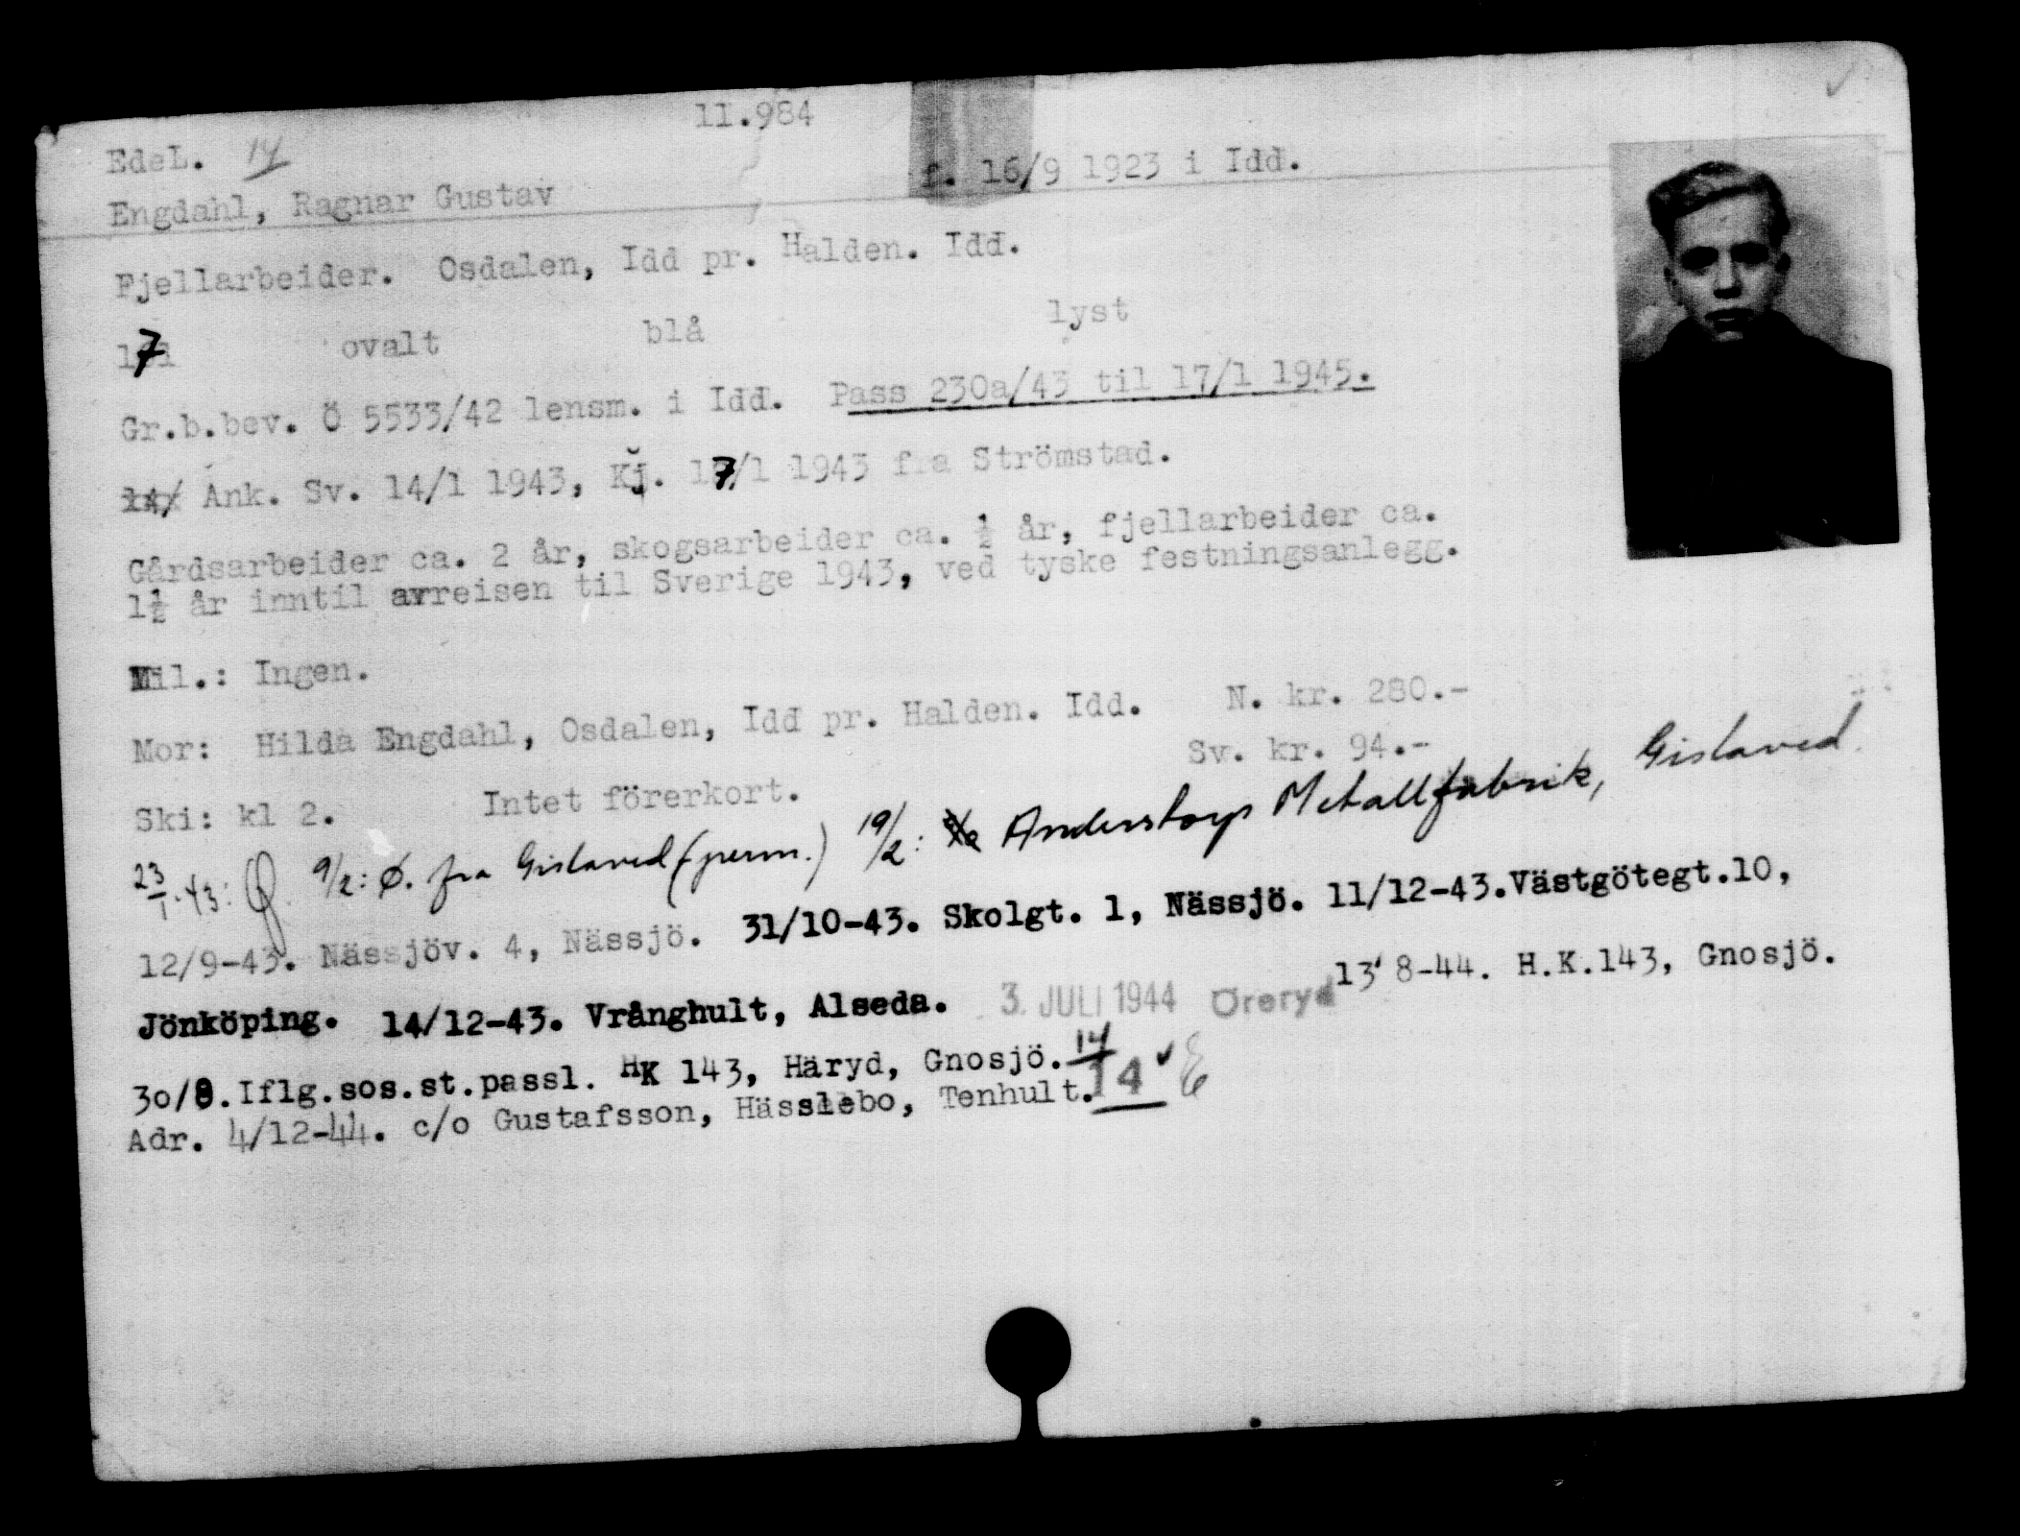 11.984
EdeL. 14
Engdahl, Ragnar Gustav f. 16/9 1923 i Idd.
Fjellarbeider. Osdalen, Idd pr. Halden. Idd.
171 ovalt blå lyst
Gr.b.bev. Ö 5533/42 lensm. i Idd. Pass 230a/43 til 17/1 1945.
Ank. Sv. 14/1 1943, Kj. 17/1 1943 fra Strömstad.
Gårdsarbeider ca. 2 år, skogsarbeider ca. ½ år, fjellarbeider ca.
1½ år inntil avreisen til Sverige 1943, ved tyske festningsanlegg.
Mil.: Ingen.
Mor: Hilda Engdahl, Osdalen, Idd pr. Halden. Idd. N. kr. 280.-
Sv. kr. 94.-
Ski: kl 2. Intet förerkort.
23/1-43: Ø. 9/2: Ø. fra Gislaved (perm.) 19/2: Anderstorp Metallfabrik, Gislaved.
12/9-43. Nässjöv. 4, Nässjö. 31/10-43. Skolgt. 1, Nässjö. 11/12-43. Västgötegt.10,
Jönköping. 14/12-43. Vrånghult, Alseda. 3. JULI 1944 Öreryd 13 8-44. H.K.143, Gnosjö.
30/8. Iflg.sos.st.passl. HK 143, Häryd, Gnosjö. 14
Adr. 4/12-44. c/o Gustafsson, Hässlebo, Tenhult. 14 E